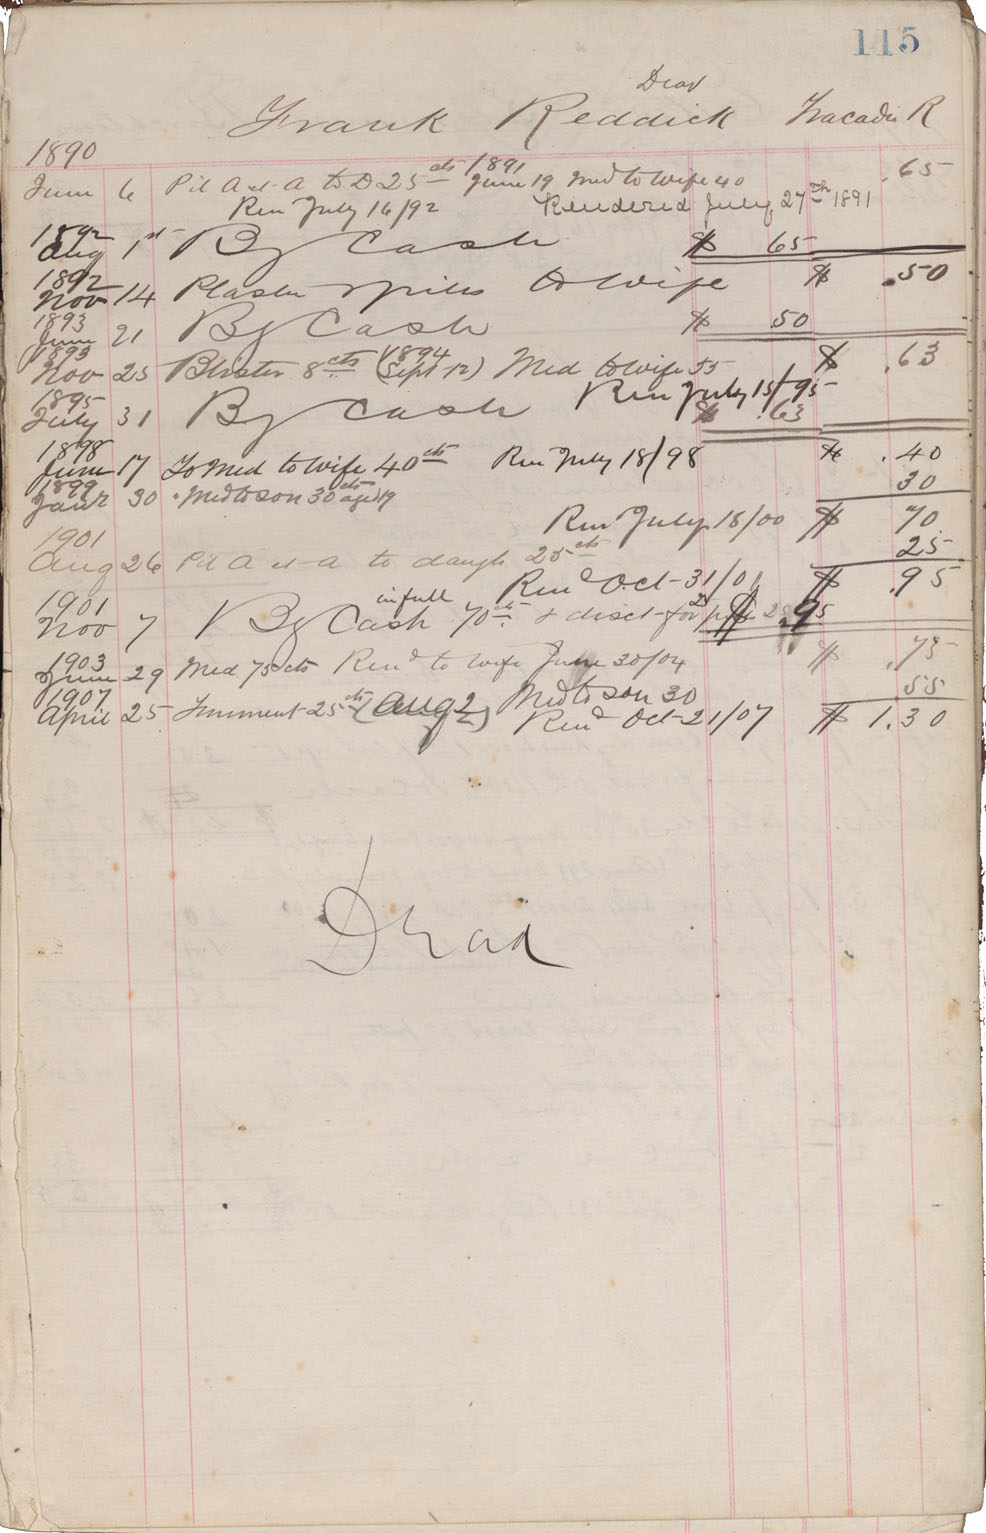 115
Dead
Frank Reddick Tracadie R
1890
June 6 Pil A et A to D 25 cts 1891 June 19 Med to wife 40 .65
Ren July 16/92 Rendered July 27th 1891
1892
Aug 1st By Cash $ 65
1892
Nov 14 Plaster & pills to wife $ .50
1893
June 21 By Cash $ .50
1893
Nov 25 Blister 8 cts (1894 Sept 12) Med to wife 55 $ .63
Ren July 15/95
1895
July 31 By Cash $ .63
1898
June 17 To Med to wife 40 cts Ren July 18/98 $ .40
1899
Janr 30 " Med to son 30 cts aged 19 30
Ren July 18/00 $ 70
1901
Aug 26 Pil A et A to daugh 25 cts 25
Rend Oct 31/01 $ .95
1901
Nov 7 By Cash in full 70 cts & disct for 25 $ .95
1903
June 29 Med 75 cts Rend to wife June 30/04 $ .75
1907
April 25 25 cts (Aug 2) Med to son 30 55
Rend Oct 21/07 $ 1.30
Dead